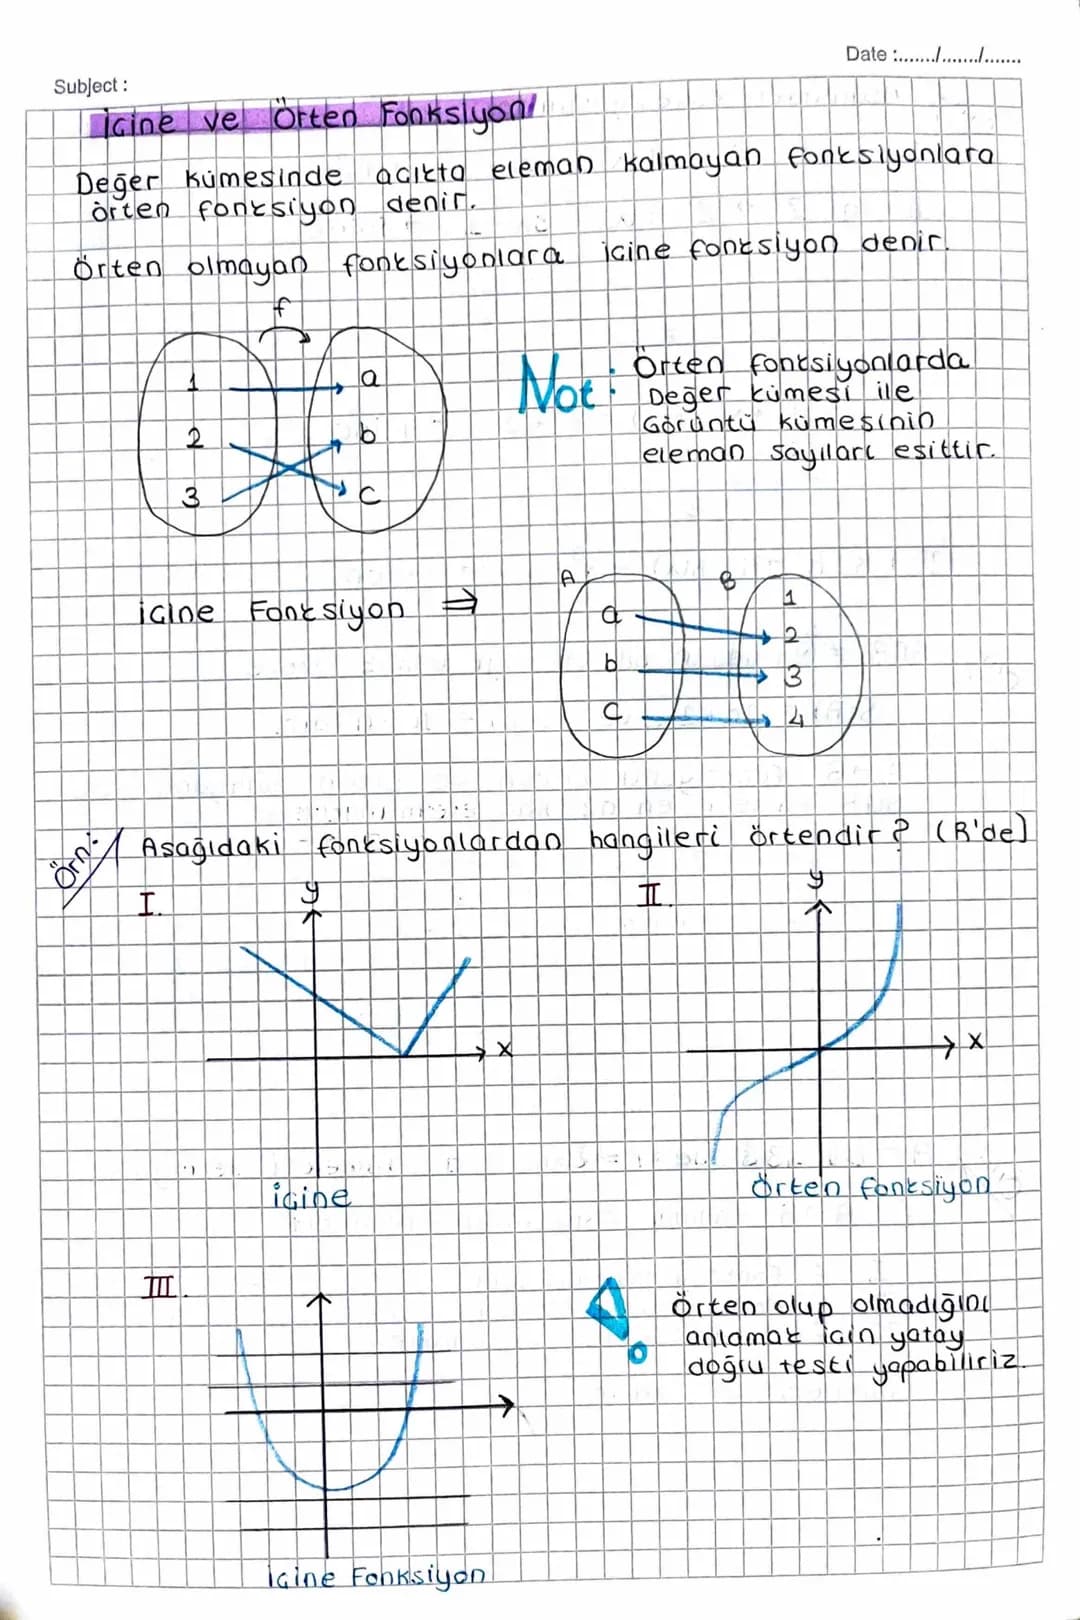 Date :......./......./.......
Subject :
İçine ve Örten Fonksiyon
Değer kümesinde açıkta eleman kalmayan fonksiyonlara
örten fonksiyon denir.
Örten olmayan fonksiyonlara içine fonksiyon denir.
f
1 a
2 b
3 c
Not: Örten fonksiyonlarda
Değer kümesi ile
Görüntü kümesinin
eleman sayıları eşittir.
içine Fonksiyon ⇒
A B
1
a 2
b 3
c 4
Örn: Aşağıdaki fonksiyonlardan hangileri örtendir? (R'de)
I. y
x
içine
II. y
x
Örten fonksiyon
III.
içine Fonksiyon
! Örten olup olmadığını
anlamak için yatay
doğru testi yapabiliriz.